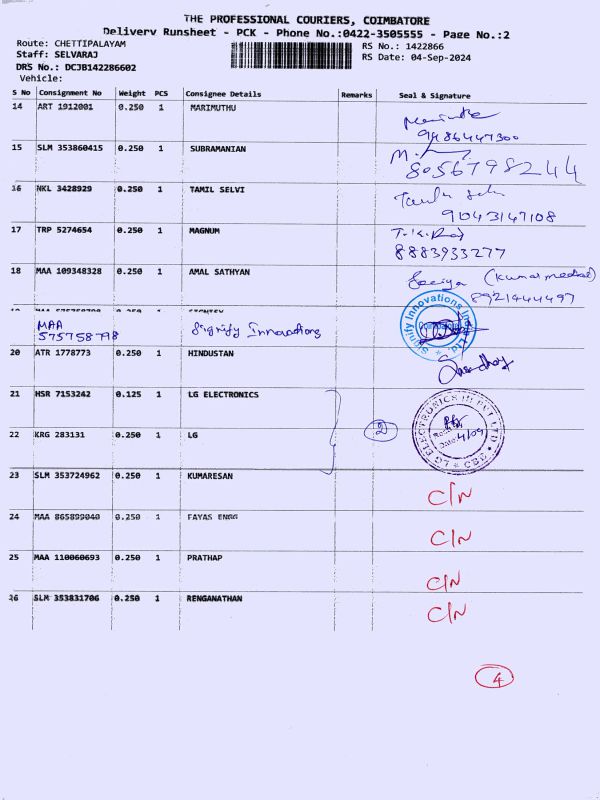 THE PROFESSIONAL COURIERS, COIMBATORE
Delivery Runsheet - PCK - Phone No.:0422-3505555 - Page No.:2
Route: CHETTIPALAYAM
RS No.: 1422866
Staff: SELVARAJ
RS Date: 04-Sep-2024
DRS No.: DCJB142286602
Vehicle:
S No Consignment No Weight PCS Consignee Details Remarks Seal & Signature
14 ART 1912001 0.250 1 MARIMUTHU
9486447300
15 SLM 353860415 0.250 1 SUBRAMANIAN M.
8056798244
16 NKL 3428929 0.250 1 TAMIL SELVI
91043147108
17 TRP 5274654 0.250 1 MAGNUM
8883933277
18 MAA 109348328 0.250 1 AMAL SATHYAN (Kumar medical)
8921444497
MAA
575758798 Signify Innovations
Signify Innovations India Ltd.
20 ATR 1778773 0.250 1 HINDUSTAN
21 HSR 7153242 0.125 1 LG ELECTRONICS
22 KRG 283131 0.250 1 LG 2
LG ELECTRONICS (I) PVT LTD
4/09
23 SLM 353724962 0.250 1 KUMARESAN C/N
24 MAA 865899040 0.250 1 FAYAS ENGG C/N
25 MAA 110060693 0.250 1 PRATHAP C/N
26 SLM 353831706 0.250 1 RENGANATHAN C/N
4